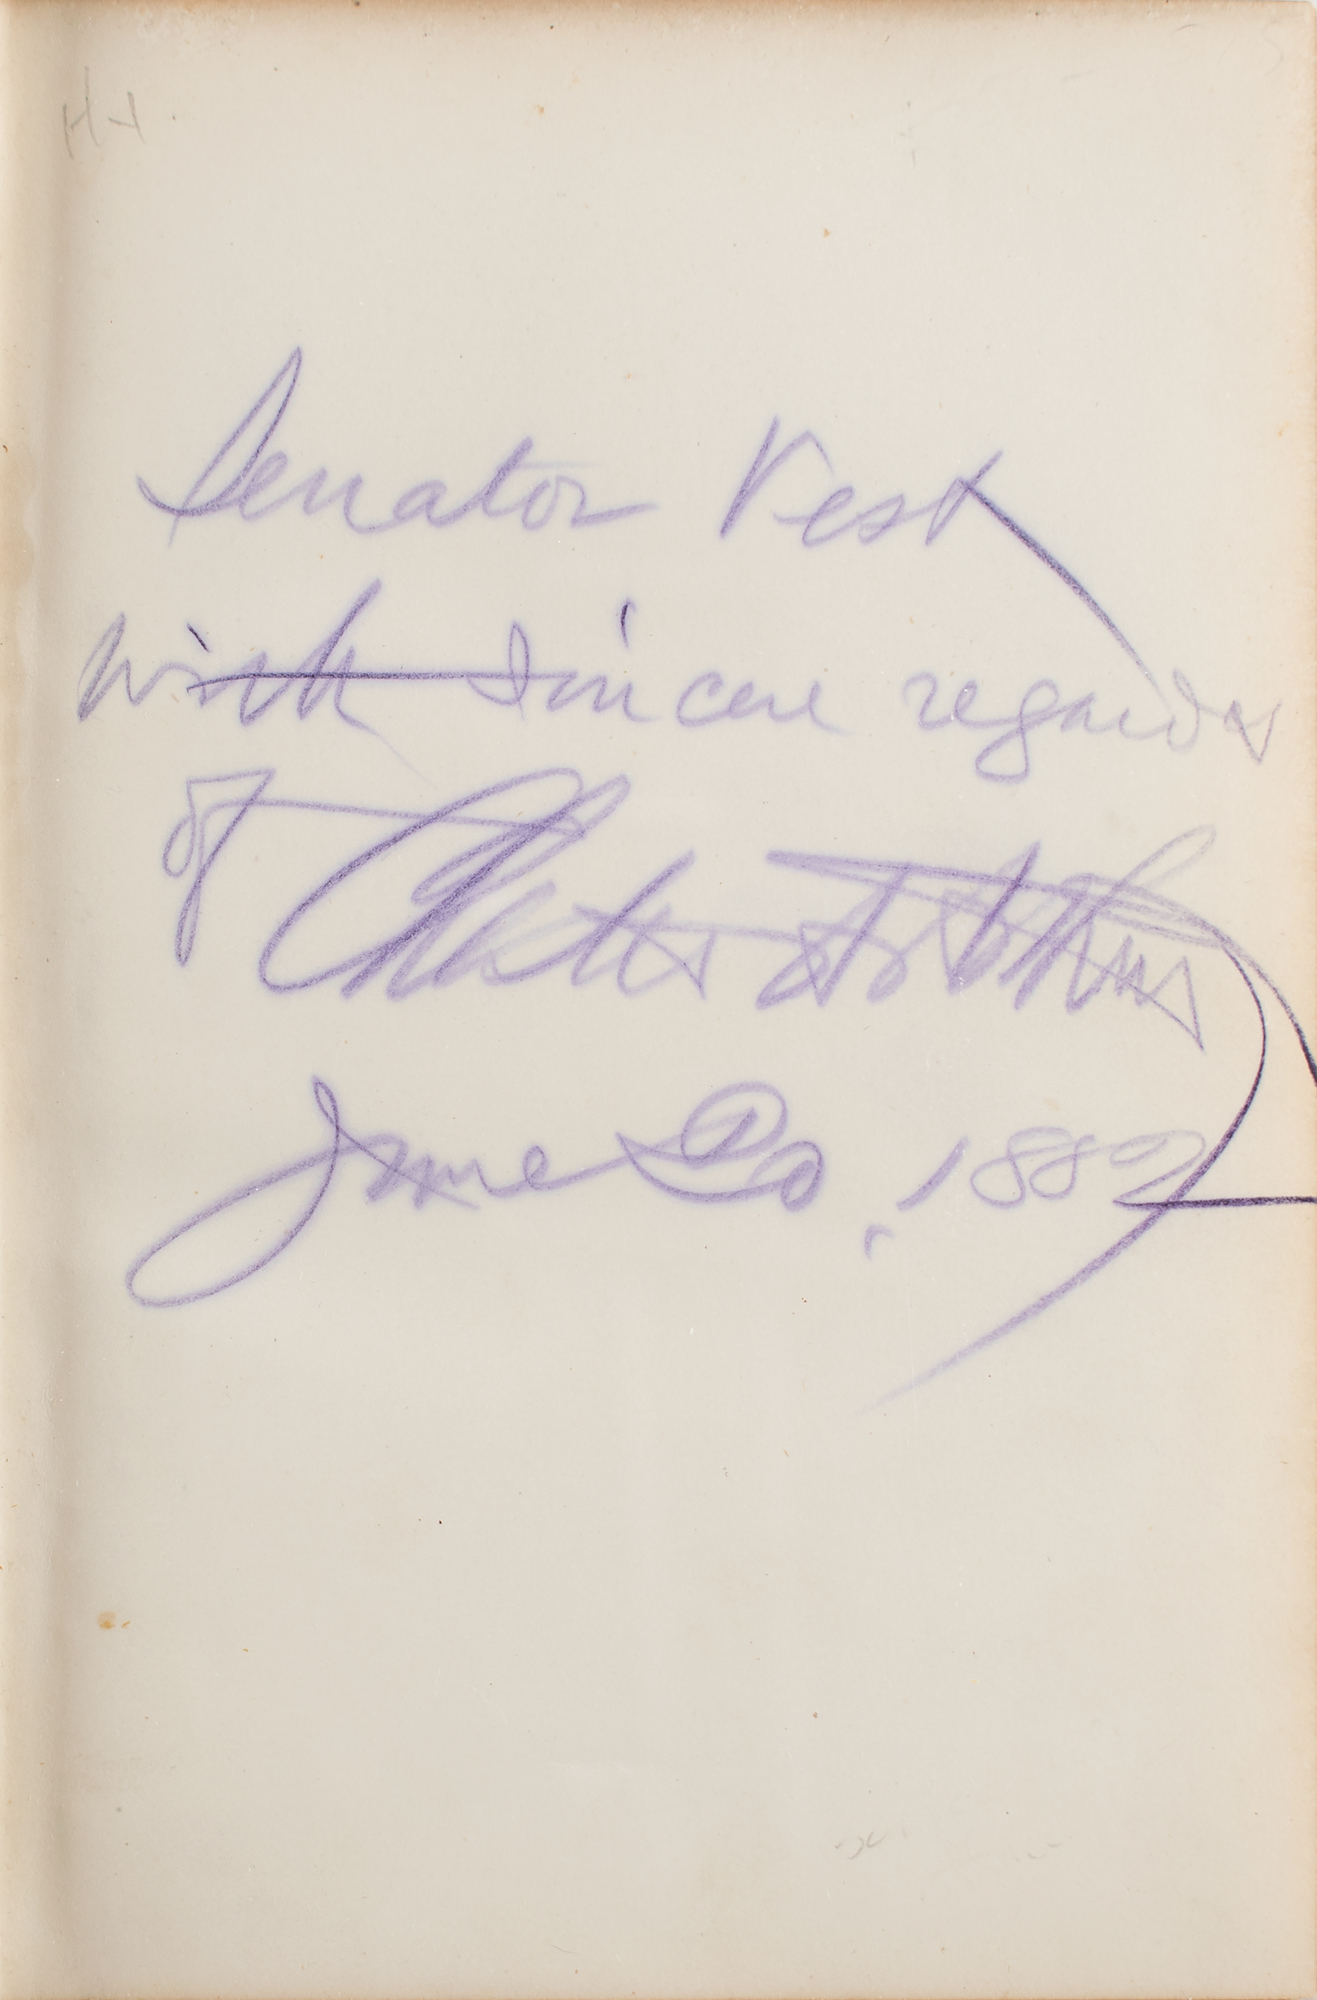 Senator Vest
with sincere regards
of Chester A Arthur
June 20, 1882